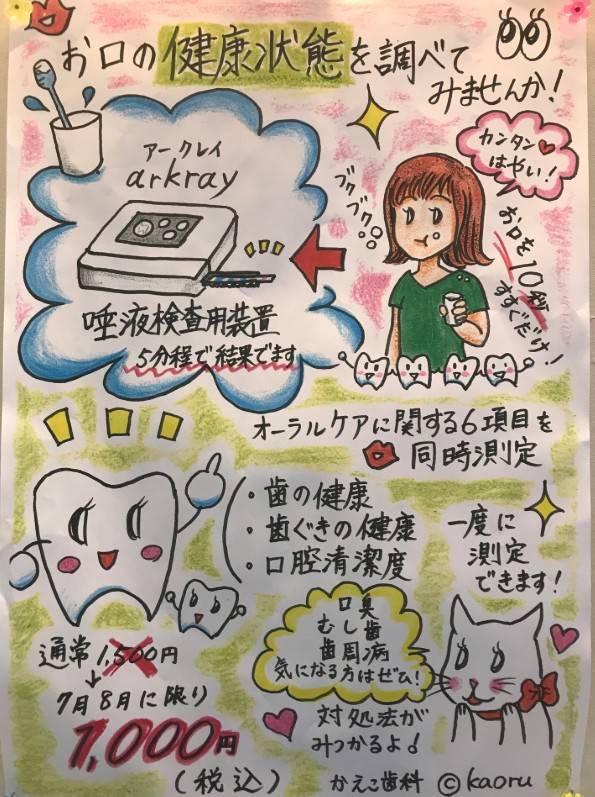 お口の健康状態を調べて
みませんか!
アークレイ
arkray
唾液検査用装置
5分程で結果でます
カンタン♥
はやい!
ブクブク
お口を10秒
すすぐだけ!
オーラルケアに関する6項目を
同時測定
・歯の健康
・歯ぐきの健康
・口腔清潔度
一度に
測定
できます!
口臭
むし歯
歯周病
気になる方はぜひ!
対処法が
みつかるよ♪
通常1,500円
7月8月に限り
1,000円
(税込)
かえこ歯科 ©kaoru